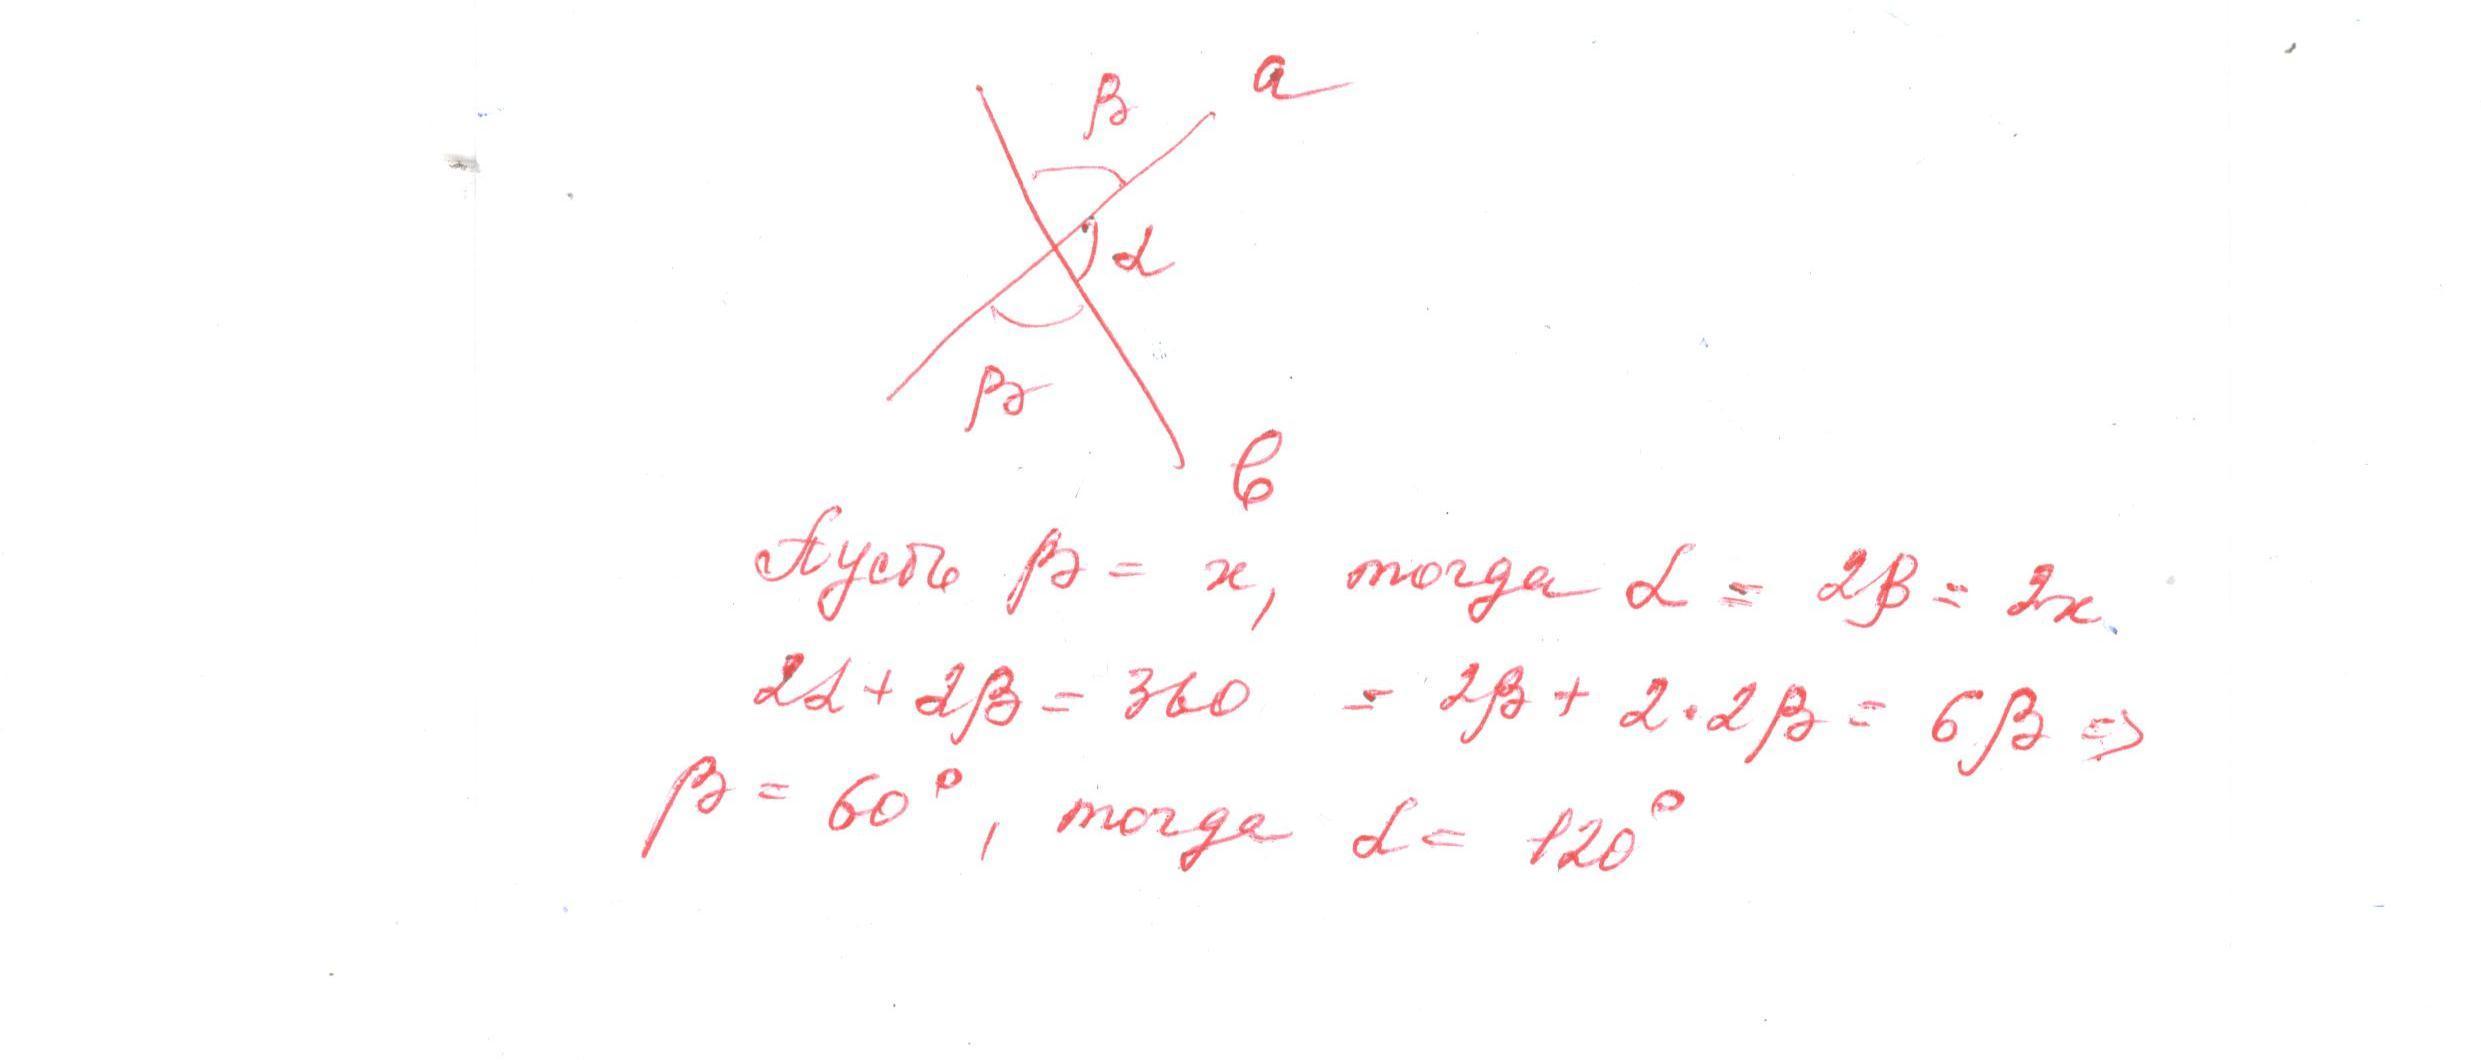 β a
α
β
b
Пусть β = x, тогда α = 2β = 2x.
2α + 2β = 360 = 2β + 2·2β = 6β ⇒
β = 60°, тогда α = 120°